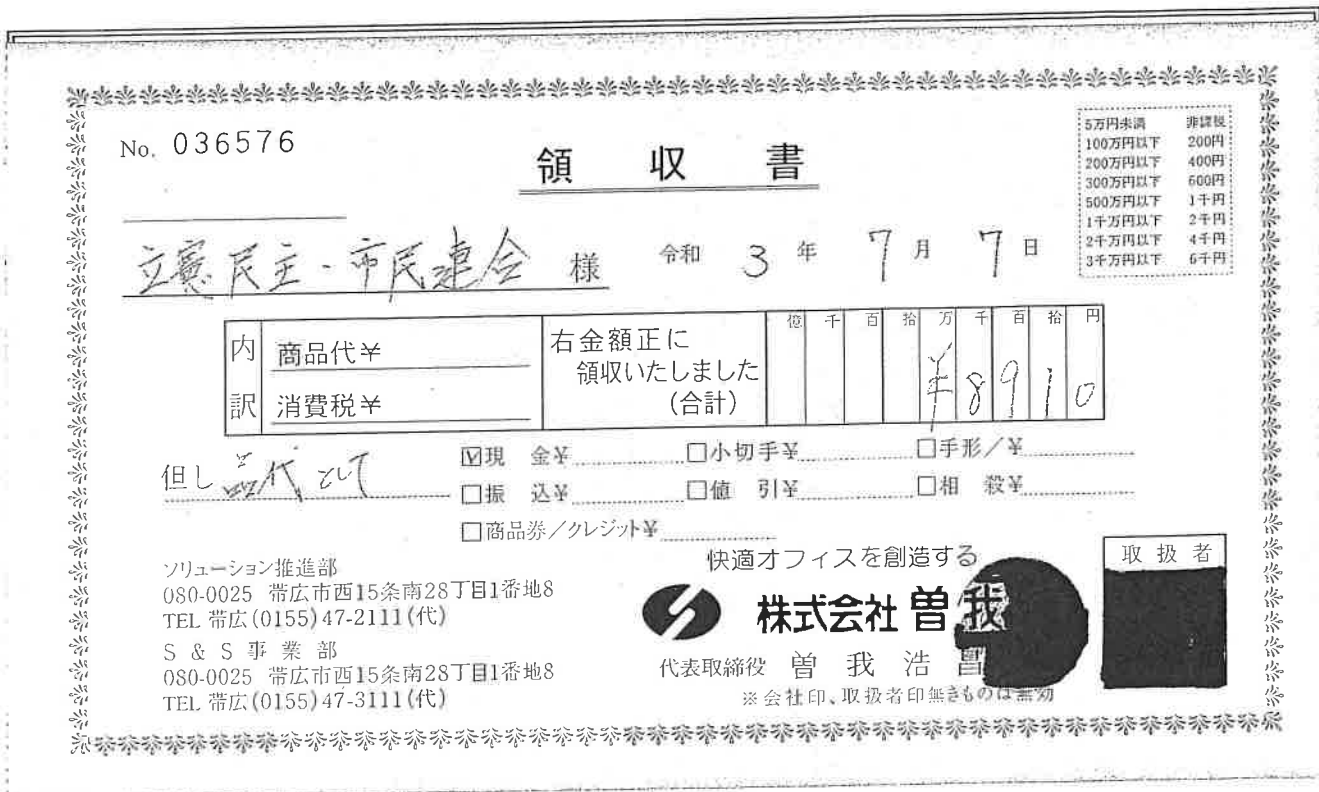 No. 036576
領収書
5万円未満 非課税
100万円以下 200円
200万円以下 400円
300万円以下 600円
500万円以下 1千円
1千万円以下 2千円
2千万円以下 4千円
3千万円以下 6千円
立憲民主・市民連合 様 令和 3 年 7 月 7 日
内訳 商品代¥
消費税¥
右金額正に
領収いたしました
(合計)
億 千 百 拾 万 千 百 拾 円
¥8910
但し 品代として
☑現 金¥ □小切手¥ □手形/¥
□振 込¥ □値 引¥ □相 殺¥
□商品券/クレジット¥
ソリューション推進部
080-0025 帯広市西15条南28丁目1番地8
TEL 帯広(0155)47-2111(代)
S & S 事 業 部
080-0025 帯広市西15条南28丁目1番地8
TEL 帯広(0155)47-3111(代)
快適オフィスを創造する
株式会社 曽我
代表取締役 曽 我 浩
※会社印、取扱者印無きものは無効
取扱者